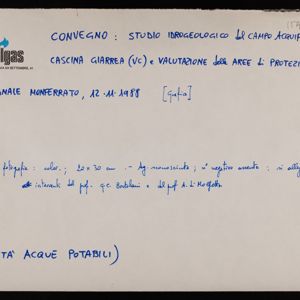 CONVEGNO : STUDIO IDROGEOLOGICO del CAMPO ACQUIF
lgas
CASCINA GIARREA (VC) e VALUTAZIONE delle AREE di PROTEZI
NALE MONFERRATO, 12.11.1988 [Grafia]
fotografia : color. ; 20x30 cm. - Ag. sconosciuta ; n° negativo assente ; si alleg
interventi del prof. G.C. Bortolami e del prof A. Di Molfetta
TÀ ACQUE POTABILI)